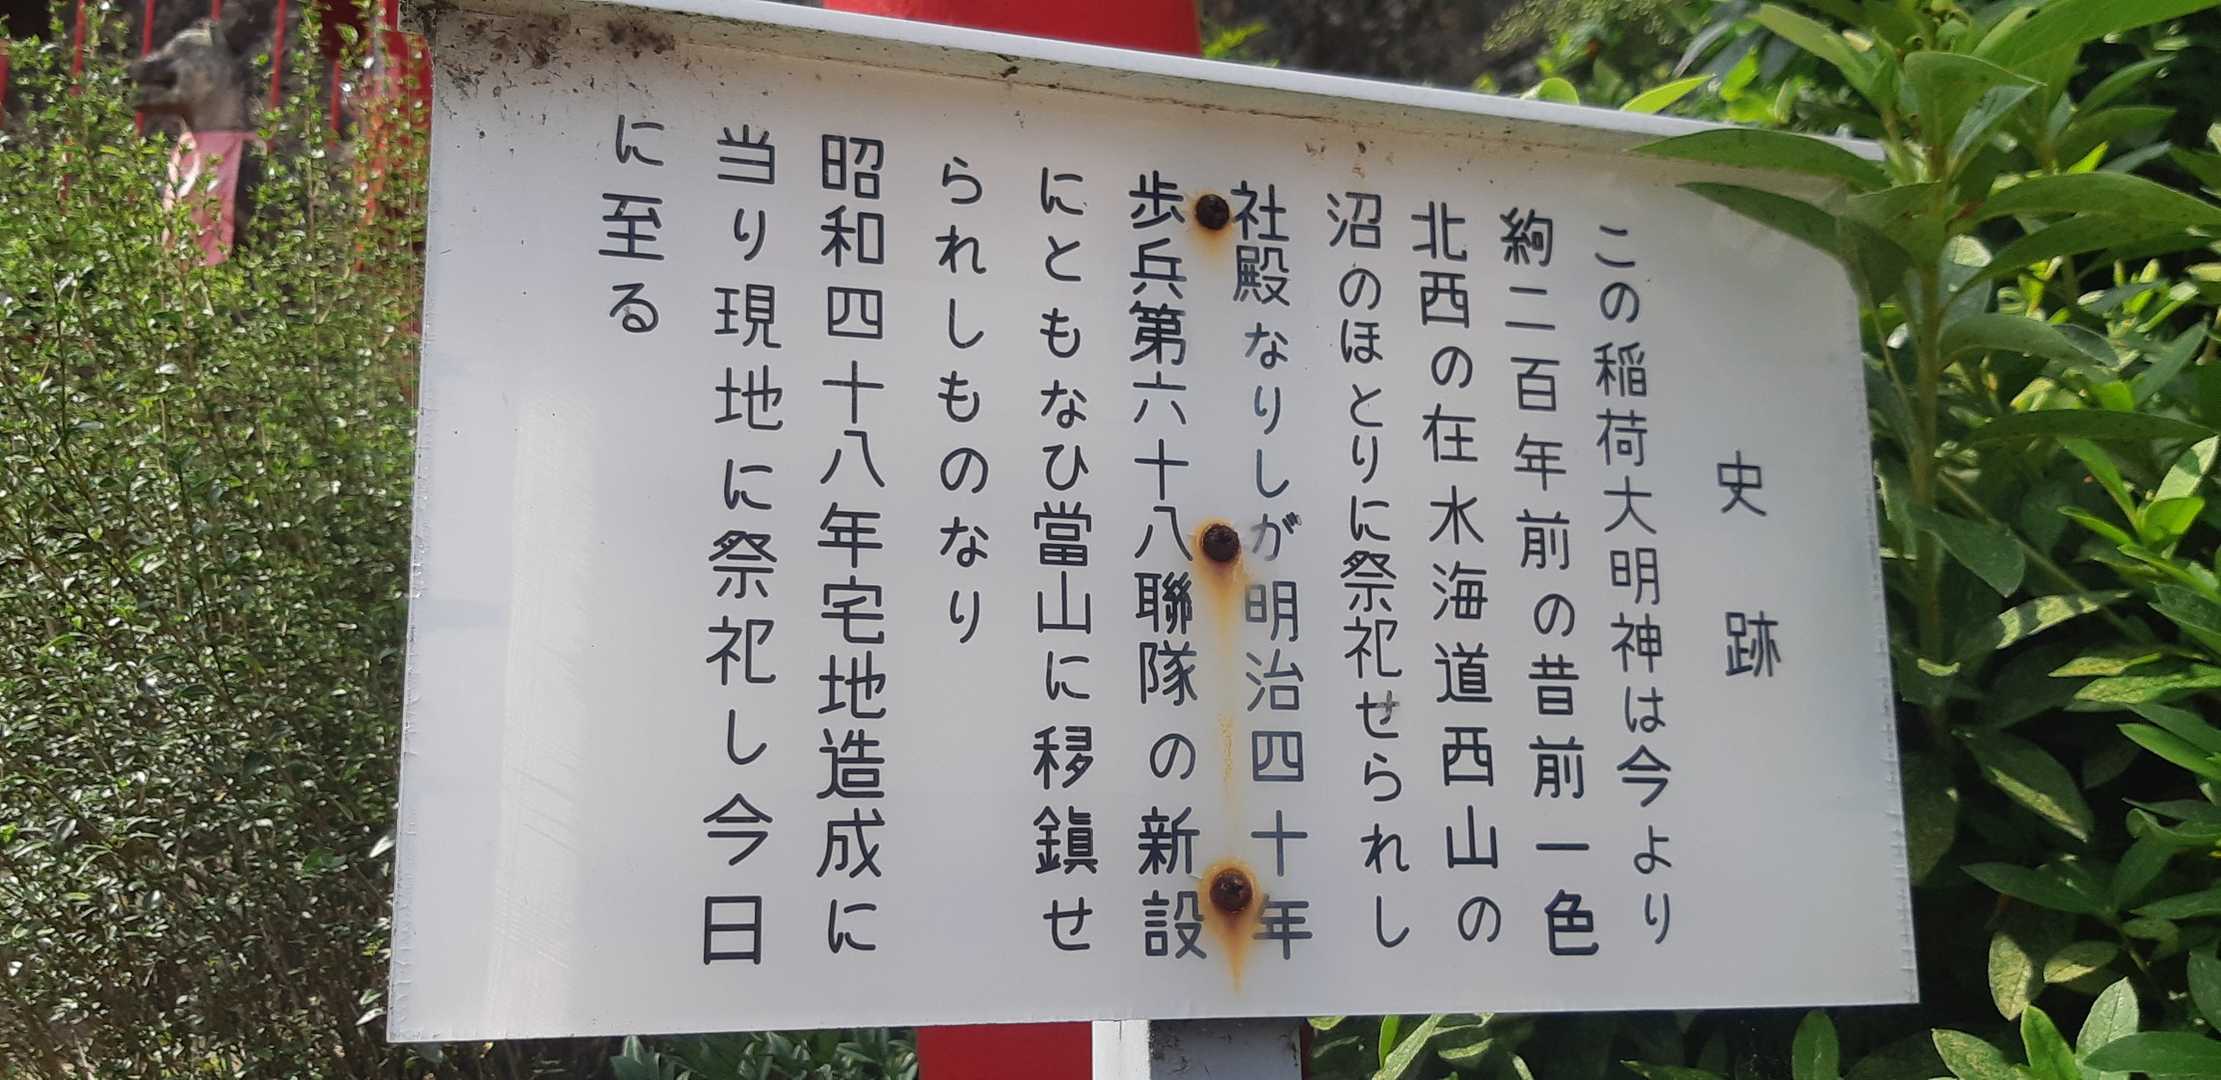 史跡
この稲荷大明神は今より
絇二百年前の昔前一色
北西の在水海道西山の
沼のほとりに祭祀せられし
社殿なりしが明治四十年
歩兵第六十八聯隊の新設
にともなひ當山に移鎭せ
られしものなり
昭和四十八年宅地造成に
当り現地に祭祀し今日
に至る